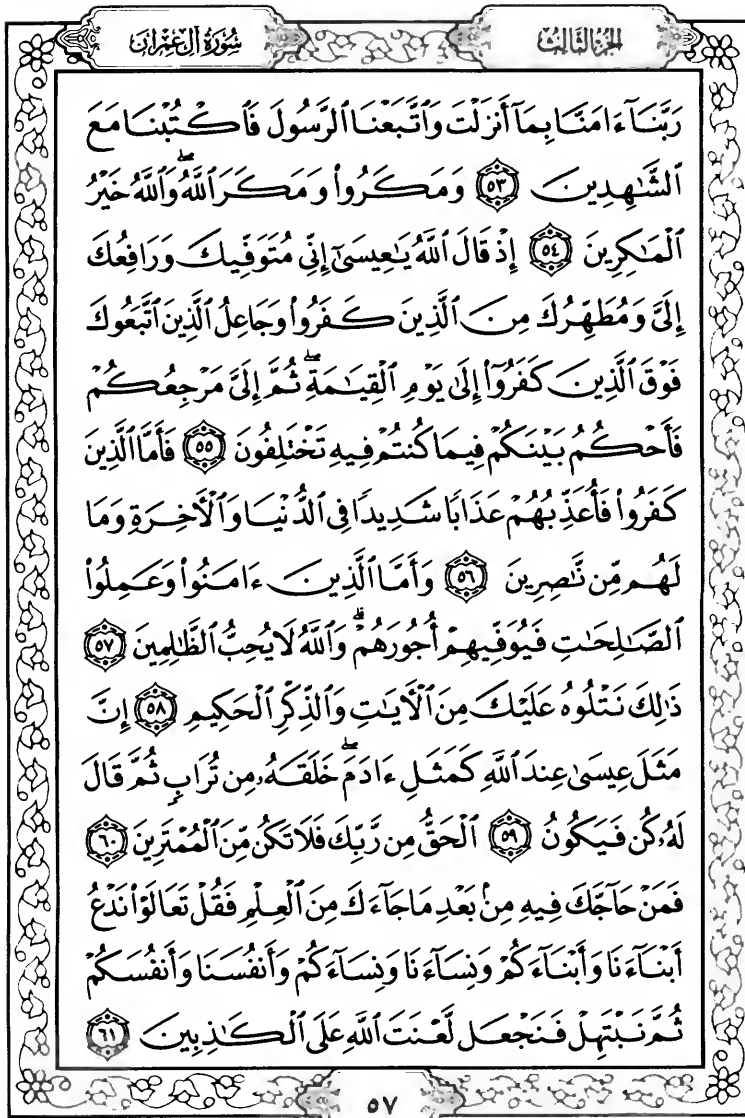 الجزء الثالث
سورة آل عمران
رَبَّنَآ ءَامَنَّا بِمَآ أَنزَلْتَ وَٱتَّبَعْنَا ٱلرَّسُولَ فَٱكْتُبْنَا مَعَ
ٱلشَّٰهِدِينَ ٥٣ وَمَكَرُوا۟ وَمَكَرَ ٱللَّهُ ۖ وَٱللَّهُ خَيْرُ
ٱلْمَٰكِرِينَ ٥٤ إِذْ قَالَ ٱللَّهُ يَٰعِيسَىٰٓ إِنِّى مُتَوَفِّيكَ وَرَافِعُكَ
إِلَىَّ وَمُطَهِّرُكَ مِنَ ٱلَّذِينَ كَفَرُوا۟ وَجَاعِلُ ٱلَّذِينَ ٱتَّبَعُوكَ
فَوْقَ ٱلَّذِينَ كَفَرُوٓا۟ إِلَىٰ يَوْمِ ٱلْقِيَٰمَةِ ۖ ثُمَّ إِلَىَّ مَرْجِعُكُمْ
فَأَحْكُمُ بَيْنَكُمْ فِيمَا كُنتُمْ فِيهِ تَخْتَلِفُونَ ٥٥ فَأَمَّا ٱلَّذِينَ
كَفَرُوا۟ فَأُعَذِّبُهُمْ عَذَابًا شَدِيدًا فِى ٱلدُّنْيَا وَٱلْءَاخِرَةِ وَمَا
لَهُم مِّن نَّٰصِرِينَ ٥٦ وَأَمَّا ٱلَّذِينَ ءَامَنُوا۟ وَعَمِلُوا۟
ٱلصَّٰلِحَٰتِ فَيُوَفِّيهِمْ أُجُورَهُمْ ۗ وَٱللَّهُ لَا يُحِبُّ ٱلظَّٰلِمِينَ ٥٧
ذَٰلِكَ نَتْلُوهُ عَلَيْكَ مِنَ ٱلْءَايَٰتِ وَٱلذِّكْرِ ٱلْحَكِيمِ ٥٨ إِنَّ
مَثَلَ عِيسَىٰ عِندَ ٱللَّهِ كَمَثَلِ ءَادَمَ ۖ خَلَقَهُۥ مِن تُرَابٍ ثُمَّ قَالَ
لَهُۥ كُن فَيَكُونُ ٥٩ ٱلْحَقُّ مِن رَّبِّكَ فَلَا تَكُن مِّنَ ٱلْمُمْتَرِينَ ٦٠
فَمَنْ حَآجَّكَ فِيهِ مِنۢ بَعْدِ مَا جَآءَكَ مِنَ ٱلْعِلْمِ فَقُلْ تَعَالَوْا۟ نَدْعُ
أَبْنَآءَنَا وَأَبْنَآءَكُمْ وَنِسَآءَنَا وَنِسَآءَكُمْ وَأَنفُسَنَا وَأَنفُسَكُمْ
ثُمَّ نَبْتَهِلْ فَنَجْعَل لَّعْنَتَ ٱللَّهِ عَلَى ٱلْكَٰذِبِينَ ٦١
٥٧